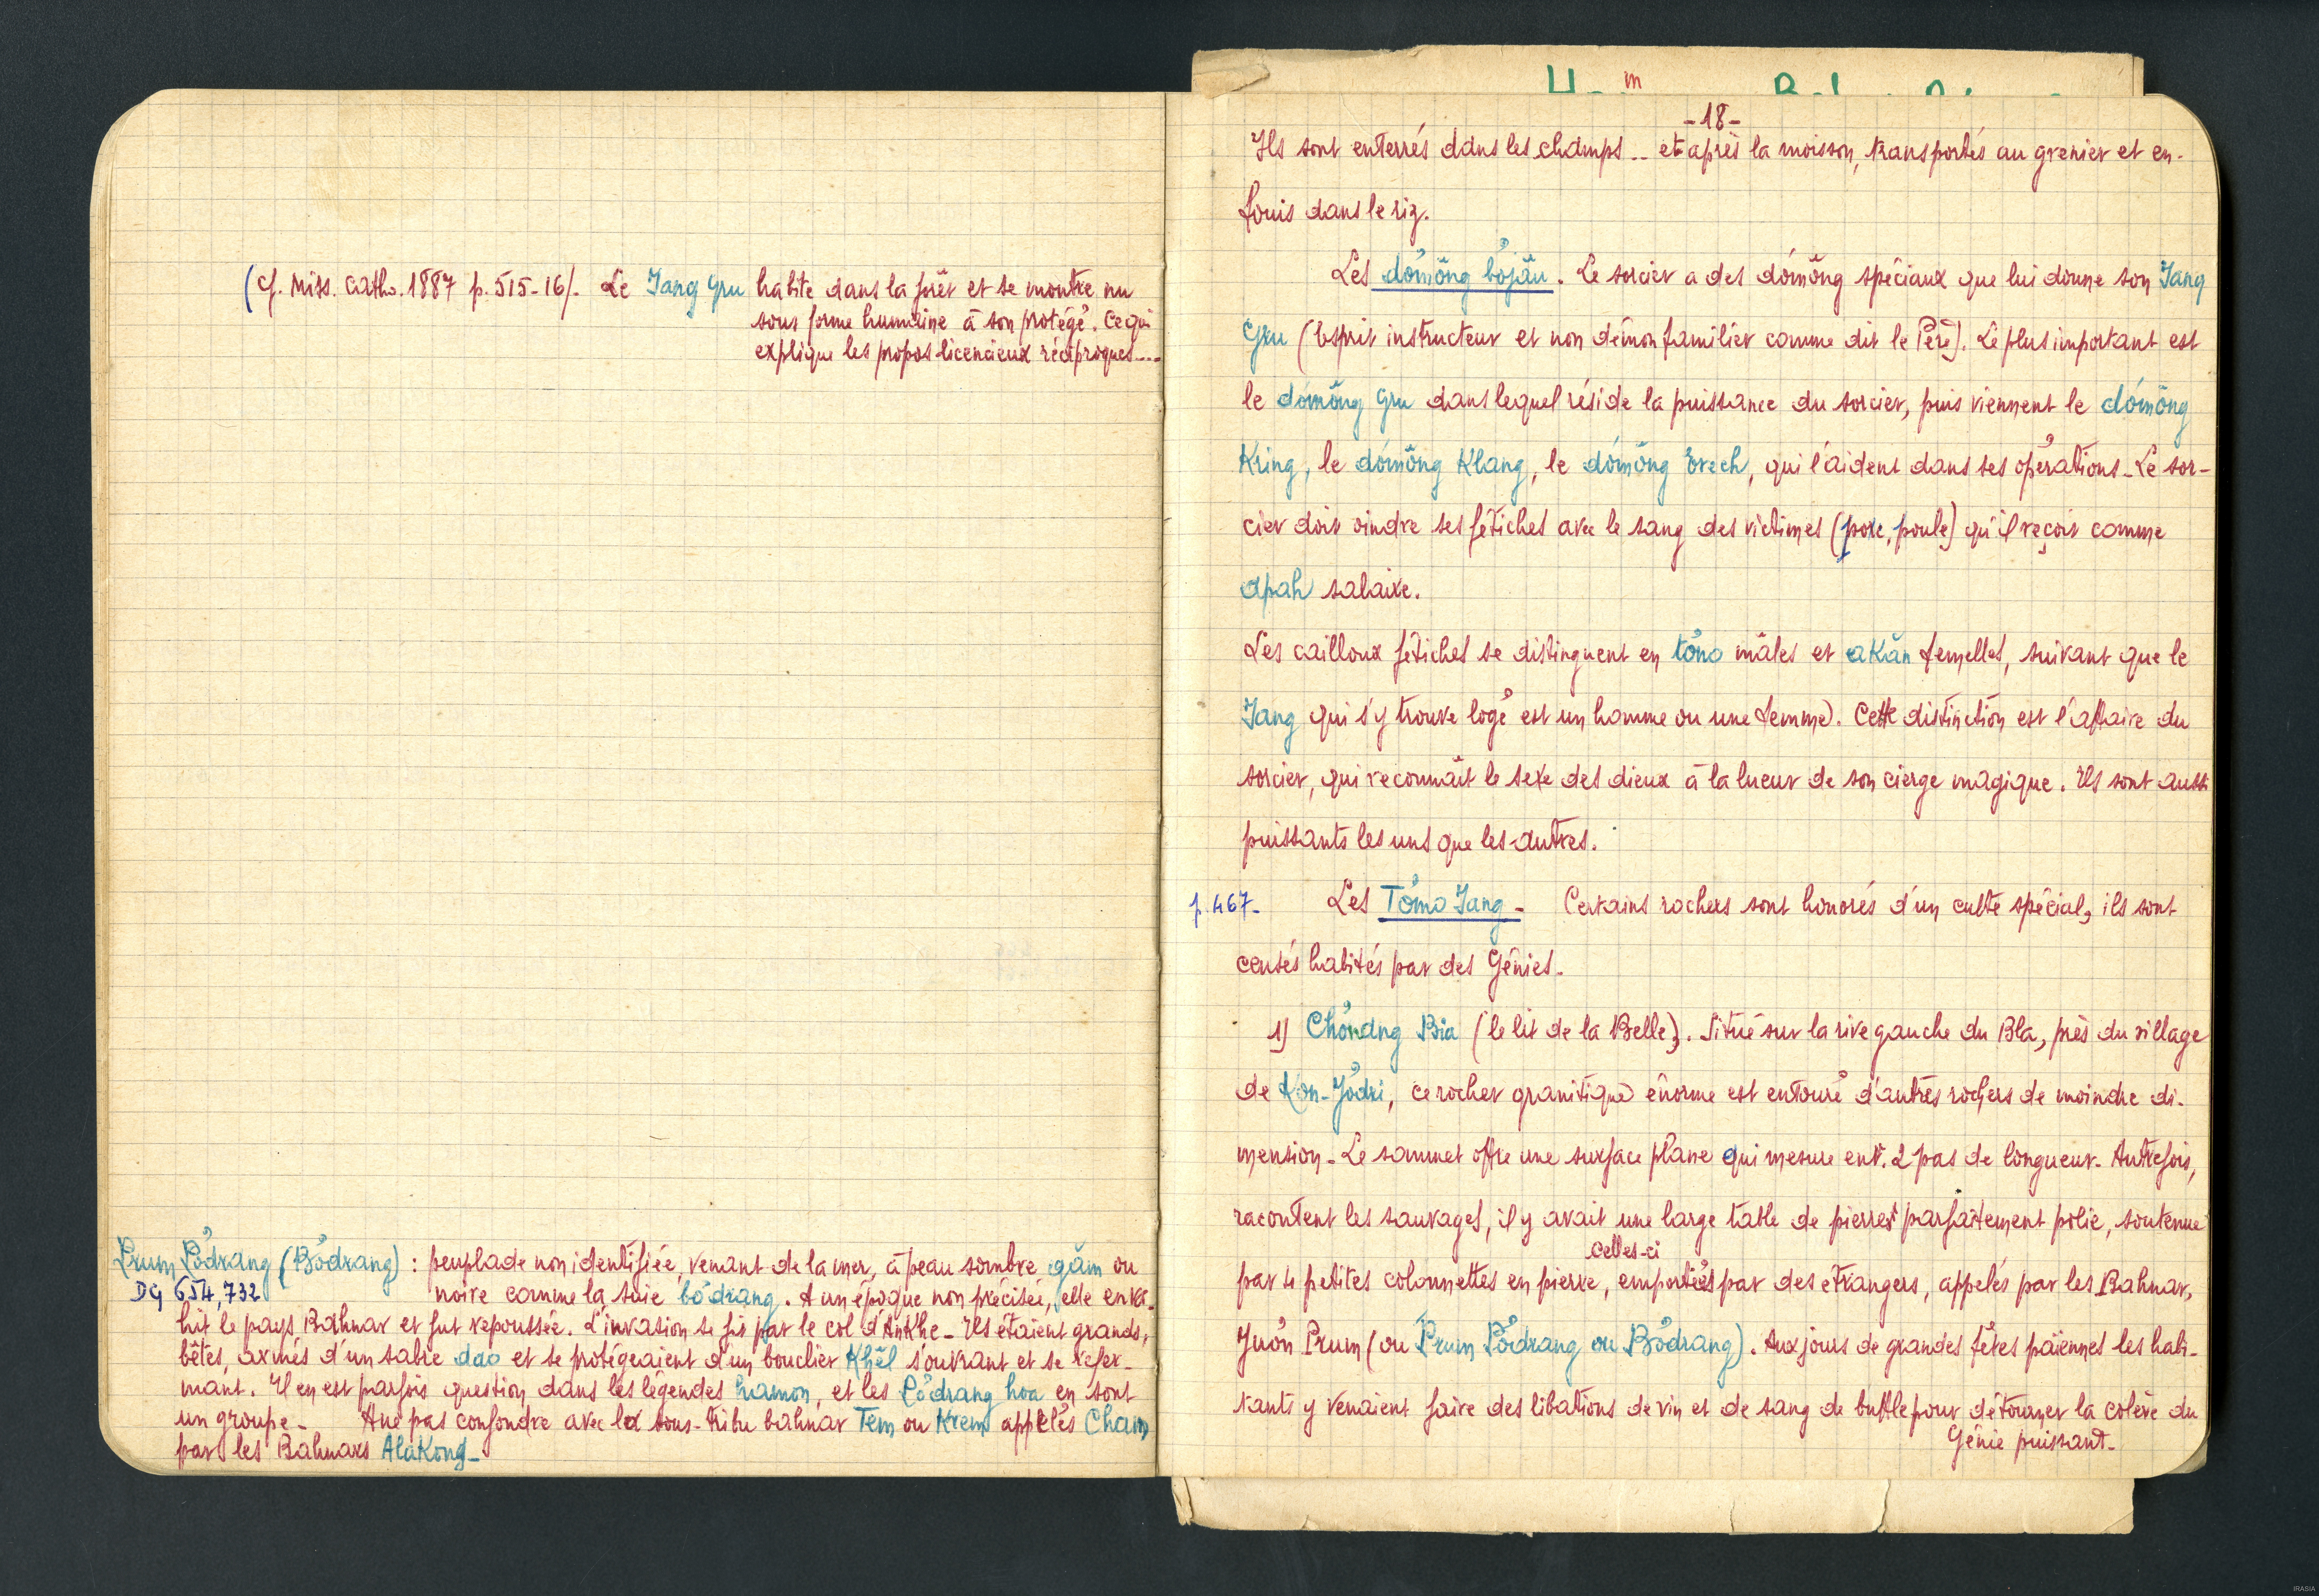 (Cf. Miss. Catho. 1887 p. 515-16/. Le Iang Gru habite dans la forêt et se montre nu
sous forme humaine à son protégé. Ce qui
explique les propos licencieux réciproques....
Prum Pơdrang (Bơdrang) : peuplade non identifiée, venant de la mer, à peau sombre găm ou
DG 654, 732 noire comme la suie bơdrang. A une époque non précisée, elle enva-
hit le pays Bahnar et fut repoussée. L'invasion se fit par le col d'AnKhe - Ils étaient grands,
bêtes, armés d'un sabre dao et se protégeaient d'un bouclier Khêl s'ouvrant et se refer-
mant. Il en est parfois question dans les légendes hamon, et les Pơdrang hoa en sont
un groupe - A ne pas confondre avec la sous-tribu bahnar Tem ou Krem appelés Cham
par les Bahnars AlaKong -
-18-
Ils sont enterrés dans les champs .. et après la moisson, transportés au grenier et en-
fouis dans le riz.
Les dơmŏng bơjâu. Le sorcier a des dơmŏng spéciaux que lui donne son Iang
Gru (Esprit instructeur et non démon familier comme dit le Père). Le plus important est
le dơmŏng Gru dans lequel réside la puissance du sorcier, puis viennent le dơmŏng
Kring, le dơmŏng Klang, le dơmŏng Drech, qui l'aident dans ses opérations - Le sor-
cier doit oindre ses fétiches avec le sang des victimes (porc, poule) qu'il reçoit comme
apah salaire.
Les cailloux fétiches se distinguent en tơno mâles et akăn femelles, suivant que le
Iang qui s'y trouve logé est un homme ou une femme. Cette distinction est l'affaire du
sorcier, qui reconnaît le sexe des dieux à la lueur de son cierge magique. Ils sont aussi
puissants les uns que les autres.
p. 467 - Les Tơmo Iang - Certains rochers sont honorés d'un culte spécial, ils sont
censés habités par des Génies -
1) Chơnang Bia (le lit de la Belle). Situé sur la rive gauche du Bla, près du village
de Kon-Jơdri, ce rocher granitique énorme est entouré d'autres rochers de moindre di-
mension - Le sommet offre une surface plane qui mesure envt. 2 pas de longueur - Autrefois,
racontent les sauvages, il y avait une large table de pierres parfaitement polie, soutenue
celles-ci
par 4 petites colonnettes en pierre, emportées par des étrangers, appelés par les Bahnar,
Juơn Prum (ou Prum Pơdrang ou Bơdrang). Aux jours de grandes fêtes païennes les habi-
tants y venaient faire des libations de vin et de sang de buffle pour détourner la colère du
Génie puissant -
IRASIA